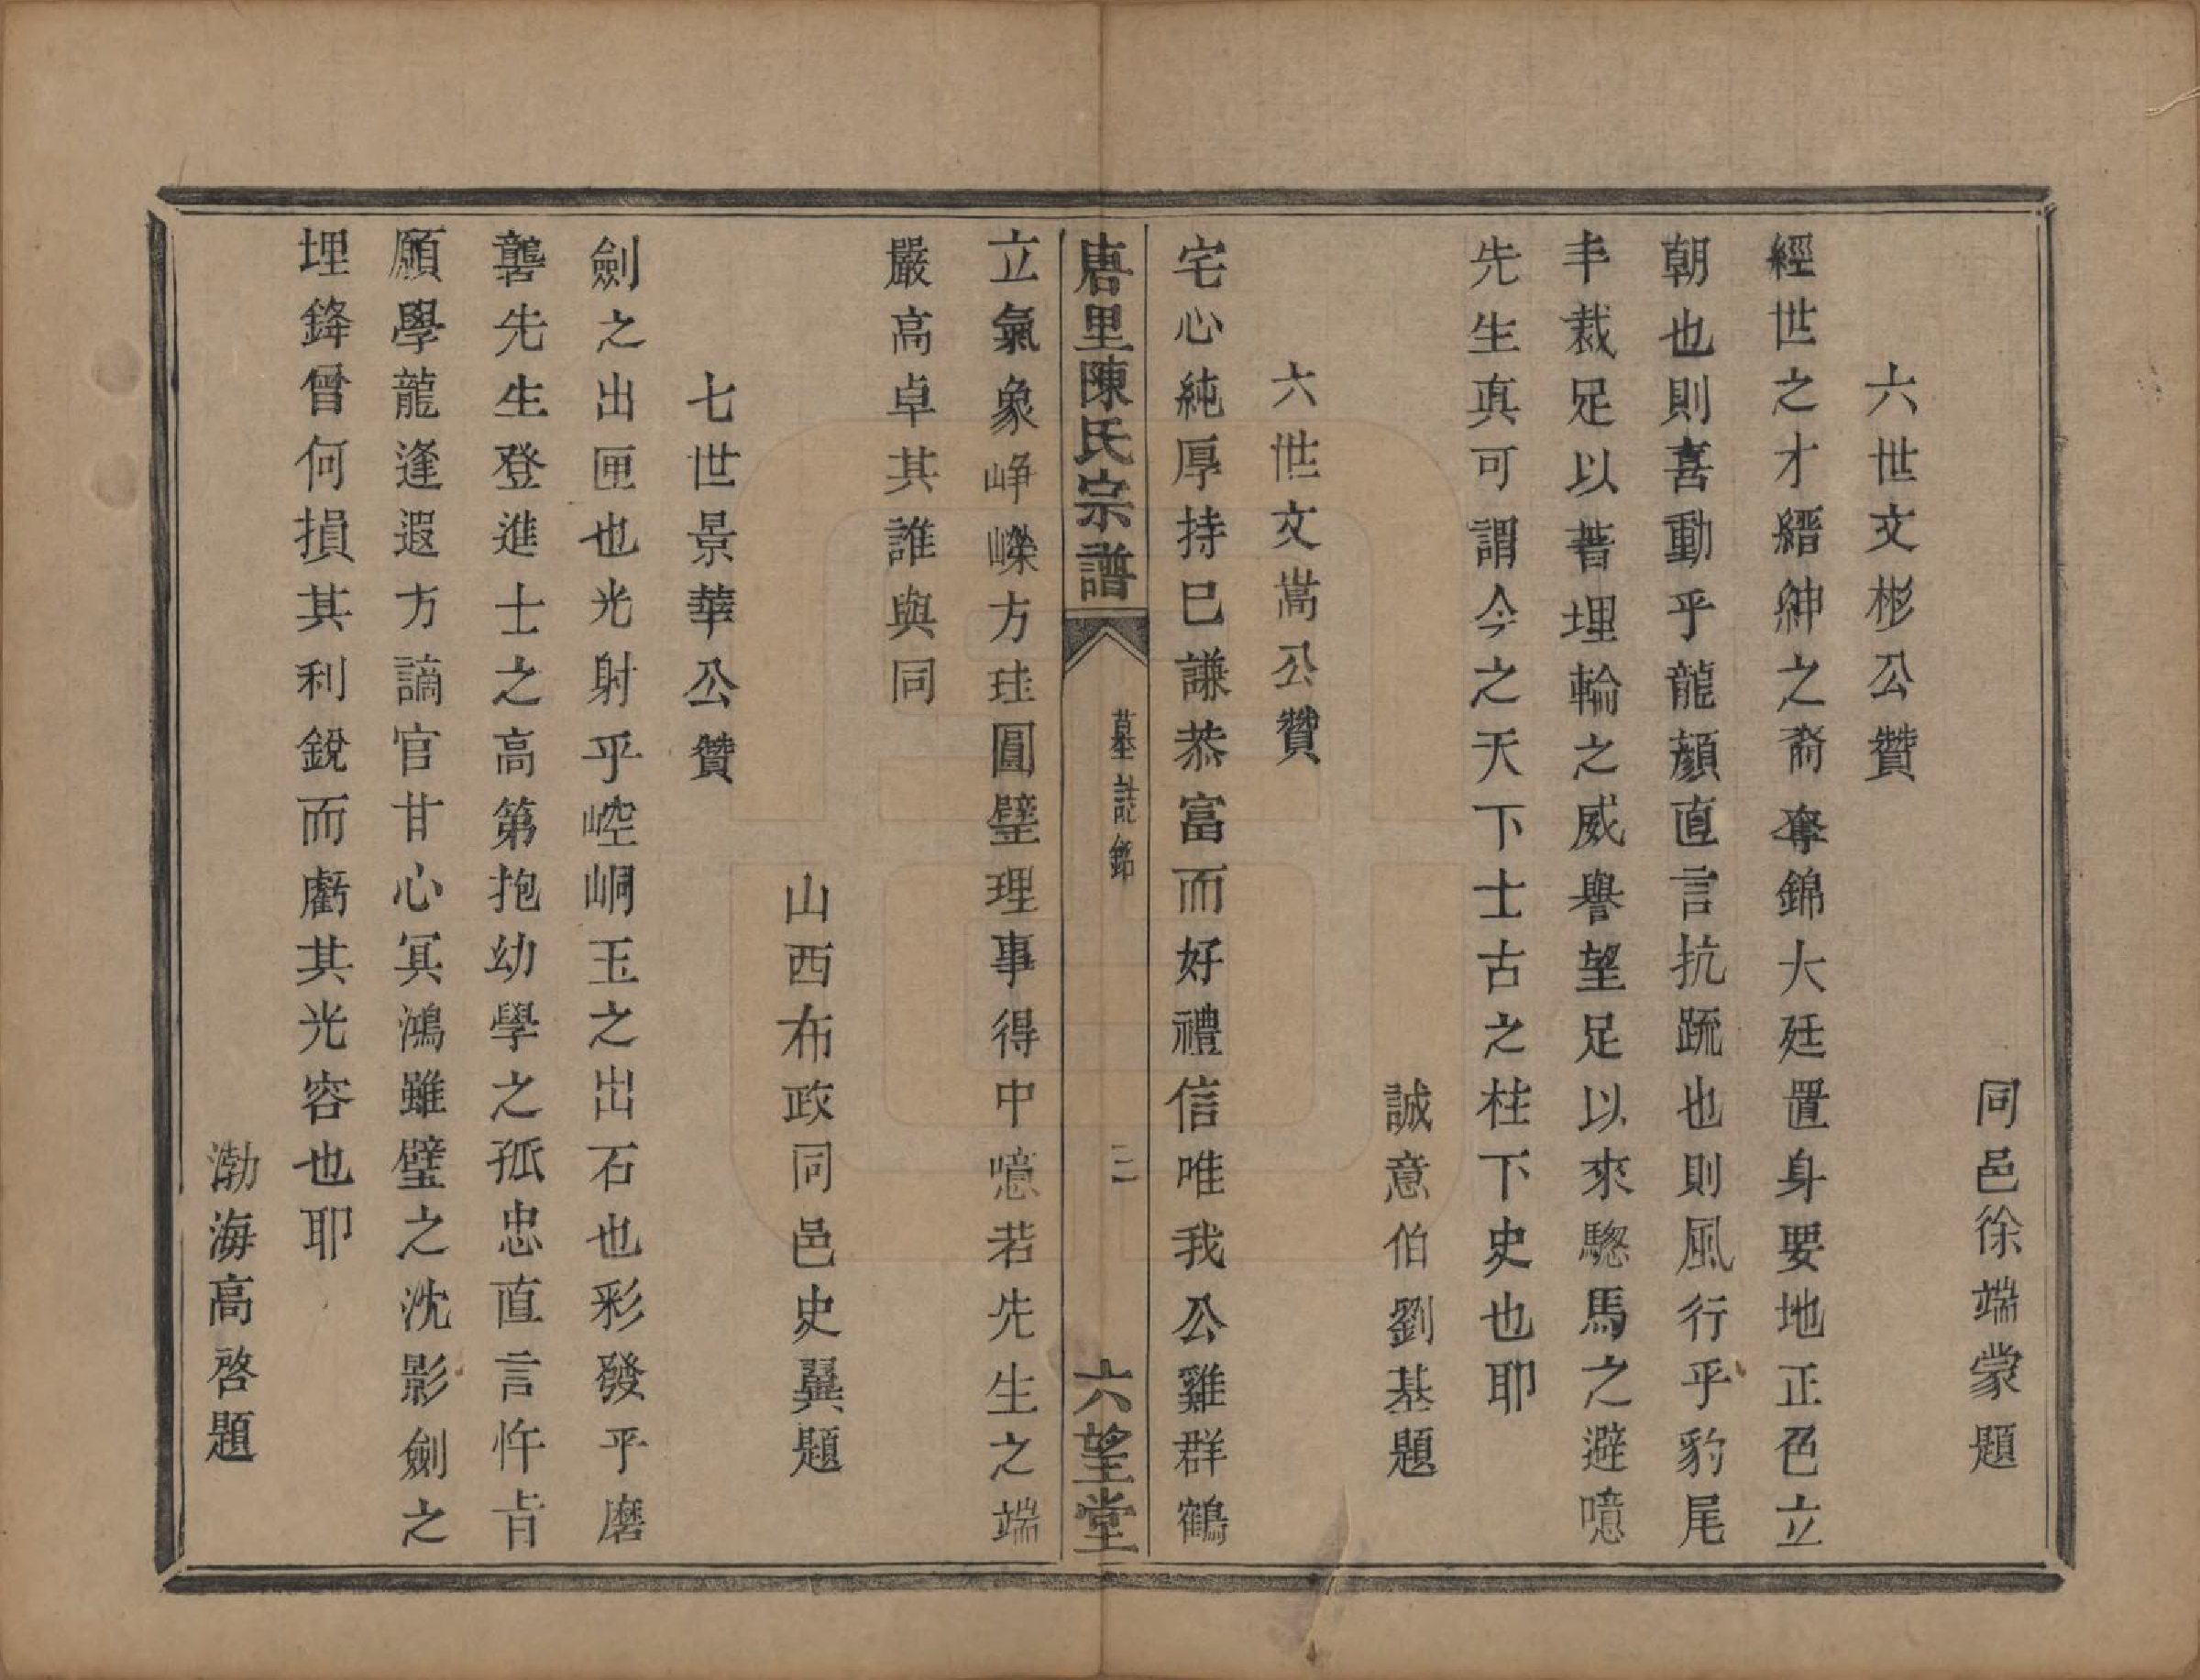 同邑徐端蒙題
六世文彬公贊
經世之才縉紳之裔奪錦大廷置身要地正色立
朝也則喜動乎龍顏直言抗疏也則風行乎豹尾
丰裁足以著埋輪之威譽望足以來驄馬之避噫
先生真可謂今之天下士古之柱下史也耶
誠意伯劉基題
六世文嵩公贊
宅心純厚持已謙恭富而好禮信唯我公雞群鶴
唐里陳氏宗譜 墓誌銘 二 六望堂
立氣象崢嶸方珪圓璧理事得中噫若先生之端
嚴高卓其誰與同
山西布政同邑史翼題
七世景華公贊
劍之出匣也光射乎崆峒玉之出石也彩發乎磨
礱先生登進士之高第抱幼學之孤忠直言忤㫖
願學龍逢遐方謫官甘心冥鴻雖璧之沈影劍之
埋鋒曾何損其利銳而虧其光容也耶
渤海高啓題